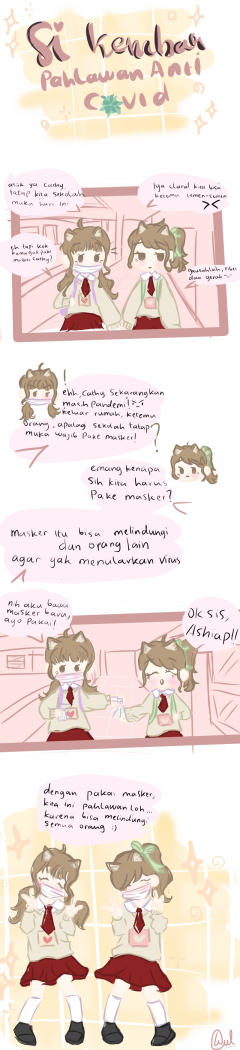 Si Kembar
Pahlawan Anti
Covid
asik ya Cathy
tatap kita sekolah
muka hari ini
Iya cland kita bisa
ketemu temen-temen
eh tapi kok
kamu gak pake
masker Cathy?
gausahlah, ribet
dan gerah
ehh, Cathy Sekarangkan
masih Pandemi!
keluar rumah, ketemu
orang, apalagi sekolah tatap
muka wajib Pake masker!
emang kenapa
Sih kita harus
Pake masker?
masker itu bisa melindungi
dan orang lain
agar gak menularkan virus
nih aku bawa
masker baru,
ayo Pakai!
Ok sis,
Ashiapll
dengan pakai masker,
kita ini pahlawan loh...
karena bisa melindungi
semua orang :)